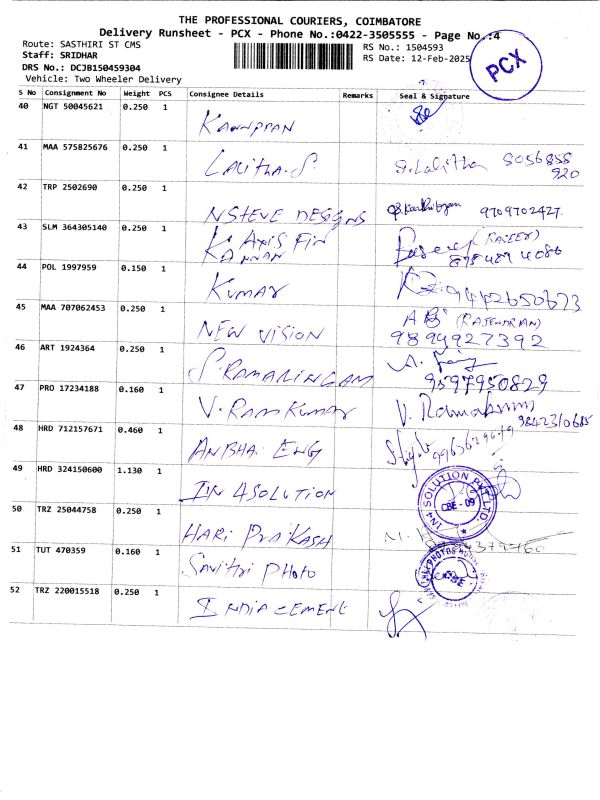 THE PROFESSIONAL COURIERS, COIMBATORE
Delivery Runsheet - PCX - Phone No.:0422-3505555 - Page No.:4
Route: SASTHIRI ST CMS
RS No.: 1504593
Staff: SRIDHAR
RS Date: 12-Feb-2025
DRS No.: DCJB150459304
Vehicle: Two Wheeler Delivery
PCX
S No Consignment No Weight PCS Consignee Details Remarks Seal & Signature
40 NGT 50045621 0.250 1 KANNPPAN
41 MAA 575825676 0.250 1 LALITHA.S S.Lalitha 5056855 920
42 TRP 2502690 0.250 1 NSTEVE DESIGNS 9709702427.
43 SLM 364305140 0.250 1 K. AXIS FIN KANNAN (RAJEEV)
44 POL 1997959 0.150 1 KUMAR 9442650673
45 MAA 707062453 0.250 1 NEW VISION (RAJENDRAN) 9894927392
46 ART 1924364 0.250 1 S. RAMALINGAM 9597950829
47 PRO 17234188 0.160 1 V. RAMKUMAR V. 9842310685
48 HRD 712157671 0.460 1 ANBHAI ENG
49 HRD 324150600 1.130 1 IN 4SOLUTION IN4 SOLUTION PVT LTD. CBE - 09
50 TRZ 25044758 0.250 1 HARI PRAKASH
51 TUT 470359 0.160 1 SAVITHRI PHOTO CBE
52 TRZ 220015518 0.250 1 INDIACEMENT